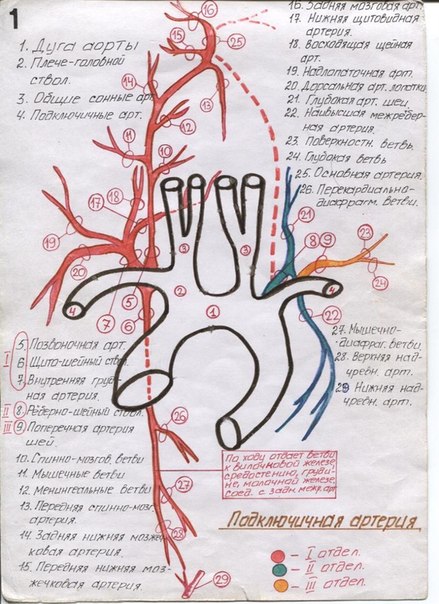 1
1. Дуга аорты
2. Плече-головной
ствол.
3. Общие сонные арт
4. Подключичные арт.
16. Задняя мозговая арт.
17. Нижняя щитовидная
артерия.
18. Восходящая шейная
арт.
19. Надлопаточная арт.
20. Дорсальная арт. лопатки
21. Глубокая арт. шеи.
22. Наивысшая межребер-
ная артерия.
23. Поверхностн. ветвь
24. Глубокая ветвь
25. Основная артерия.
26. Перекардиально-
диафрагм. ветви.
16
15
25
14
13
12
11
10
18
17
19
20
21
8
9
23
24
22
3
3
2
1
4
4
5
6
7
I
5. Позвоночная арт.
6. Щито-шейный ствол.
7. Внутренняя груд-
ная артерия.
II
8. Реберно-шейный ствол.
III
9. Поперечная артерия
шей.
10. Спинно-мозгов. ветви
11. Мышечные ветви
12. Менингеальные ветви
13. Передняя спинно-мозг
артерия.
14. Задняя нижняя мозже-
чковая артерия.
15. Передняя нижняя моз-
жечковая артерия.
27. Мышечно-
диафраг. ветви.
28. Верхняя над-
чревн. арт.
29. Нижняя над-
чревн. арт.
26
27
28
29
По ходу отдает ветви
к вилочковой железе,
средостению, груди-
не, молочной железе,
соед. с задн. межр. арт
Подключичная артерия
- I отдел.
- II отдел.
- III отдел.